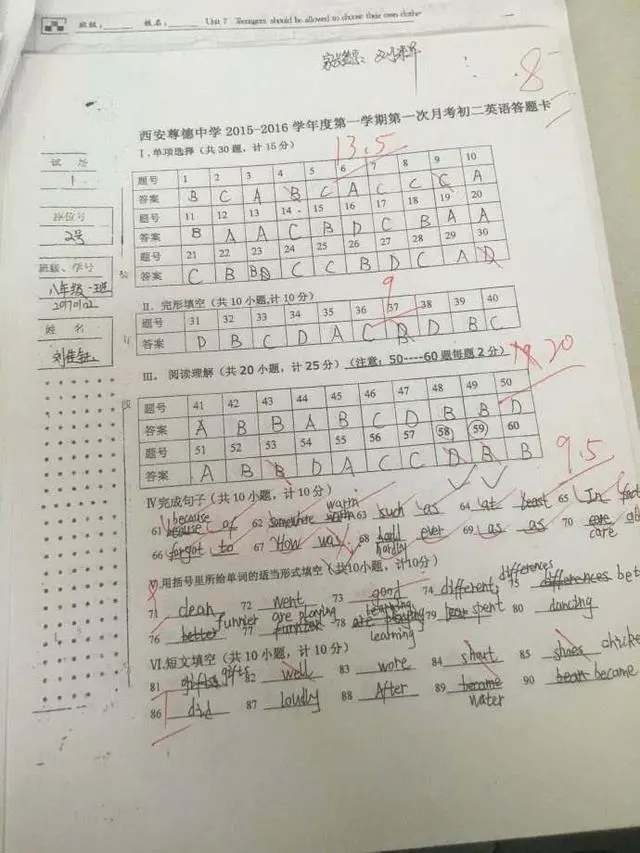 班级: 姓名: Unit 7 Teenagers should be allowed to choose their own clothe
8
西安尊德中学 2015-2016 学年度第一学期第一次月考初二英语答题卡
13.5
I.单项选择(共30题,计15分)
题号 1 2 3 4 5 6 7 8 9 10
答案 B C A B C A C C C A
题号 11 12 13 14 15 16 17 18 19 20
答案 B A A C B D C B A A
题号 21 22 23 24 25 26 27 28 29 30
答案 C B D C C B D C A D
试 场
1
座位号
2号
班级、学号
八年级一班
姓 名
II. 完形填空(共10小题,计10分)
9
题号 31 32 33 34 35 36 37 38 39 40
答案 D B C D A C B D B C
III. 阅读理解(共20小题,计25分)(注意:50----60题每题2分)
20
题号 41 42 43 44 45 46 47 48 49 50
答案 A B B A B C D B B D
题号 51 52 53 54 55 56 57 58 59 60
答案 A B B D A C C D B B
9.5
IV 完成句子(共10小题,计10分)
61 because of 62 somewhere warm 63 such as 64 at least 65 In fact
66 forgot to 67 How was 68 hardly ever 69 as as 70 care
V.用括号里所给单词的适当形式填空(共10小题,计10分)
71 clean 72 went 73 good 74 different 75 differences
76 funnier 77 are playing 78 learning 79 spent 80 dancing
VI.短文填空(共10小题,计10分)
81 gifts 82 well 83 wore 84 shout 85
86 did 87 loudly 88 After 89 water 90 became